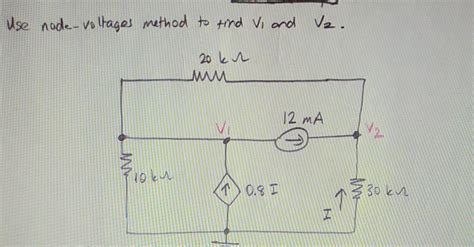 Use node-voltages method to find V1 and V2.
20 kΩ
12 mA
V1
V2
10 kΩ
0.8 I
30 kΩ
I